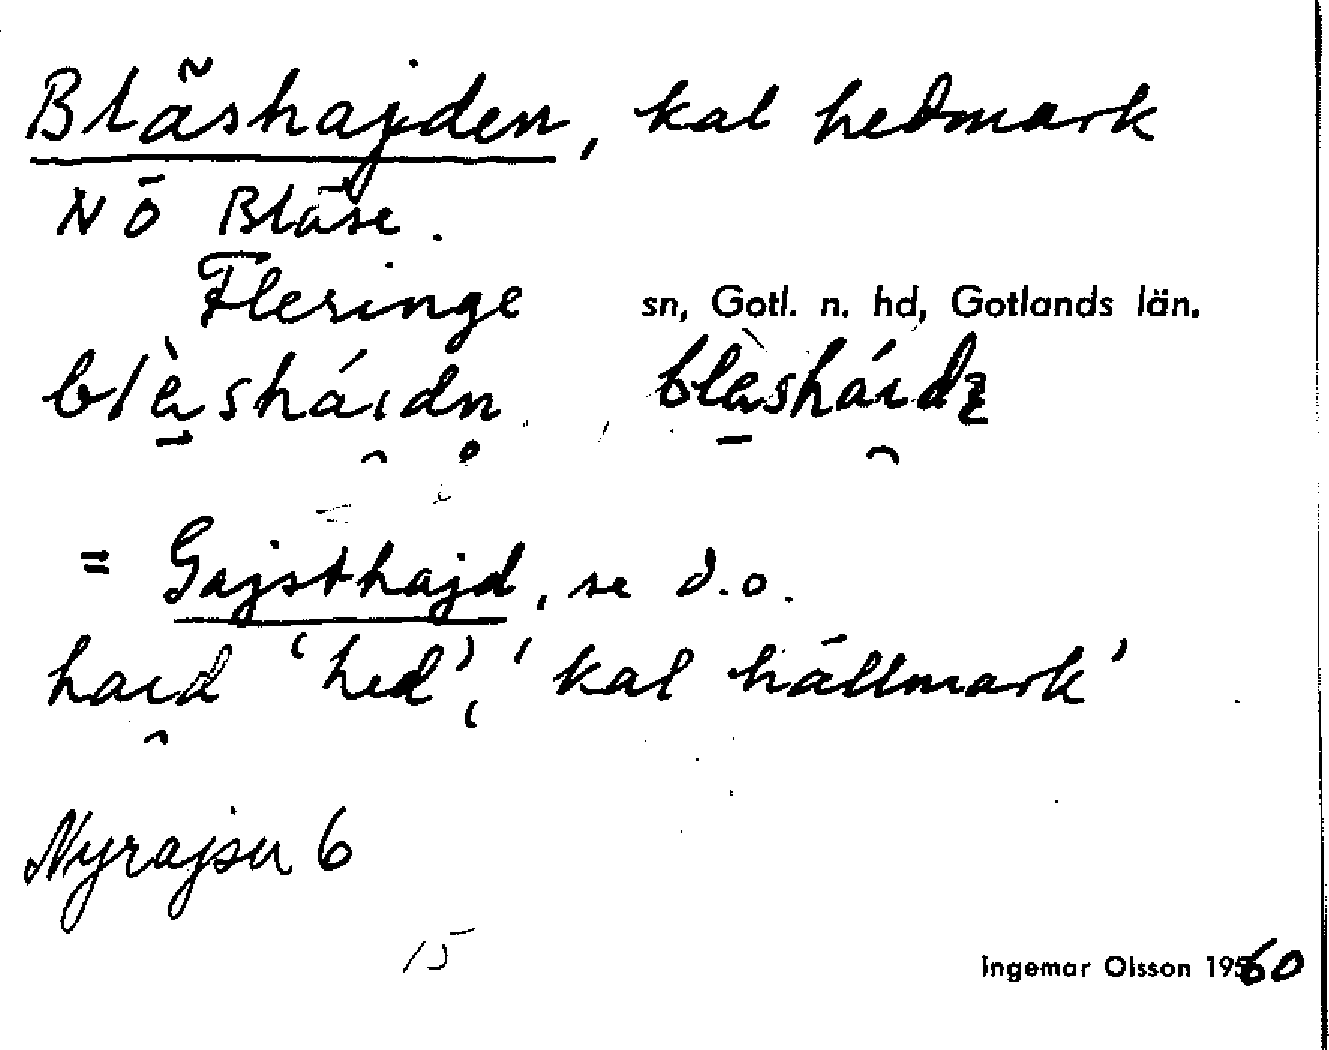 Bläshajden, kal hedmark
NÖ Bläse.
Fleringe sn, Gotl. n. hd, Gotlands län.
= Gajsthajd, se d.o.
haid 'hed', 'kal hällmark'
Nyrajsu 6
15
Ingemar Olsson 1960